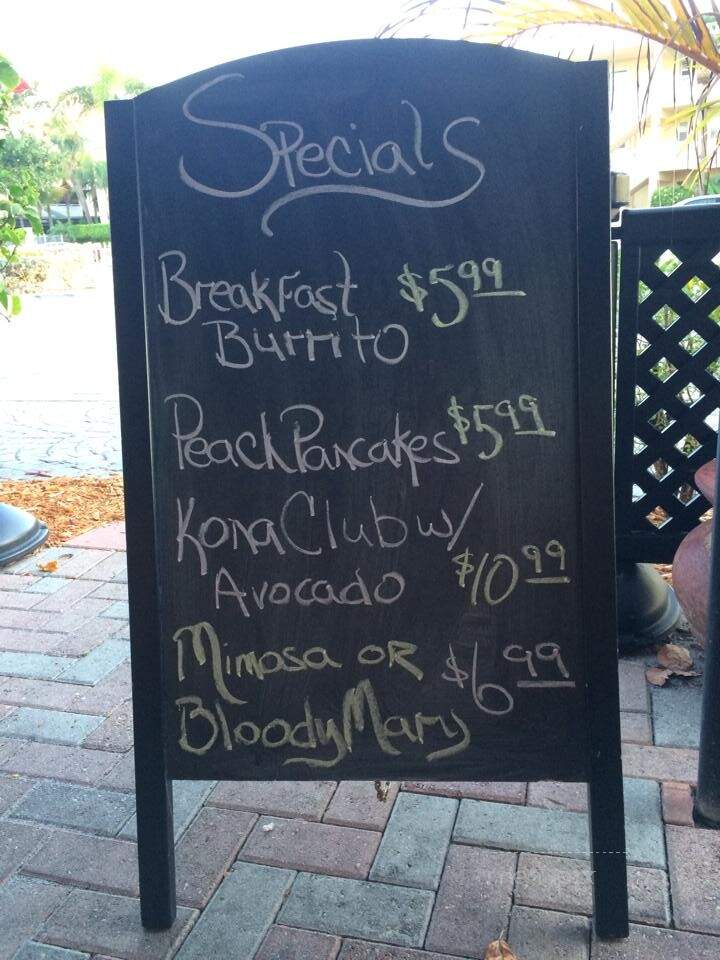 Specials
Breakfast $5.99
Burrito
Peach Pancakes $5.99
Kona Club w/
Avocado $10.99
Mimosa OR $6.99
Bloody Mary